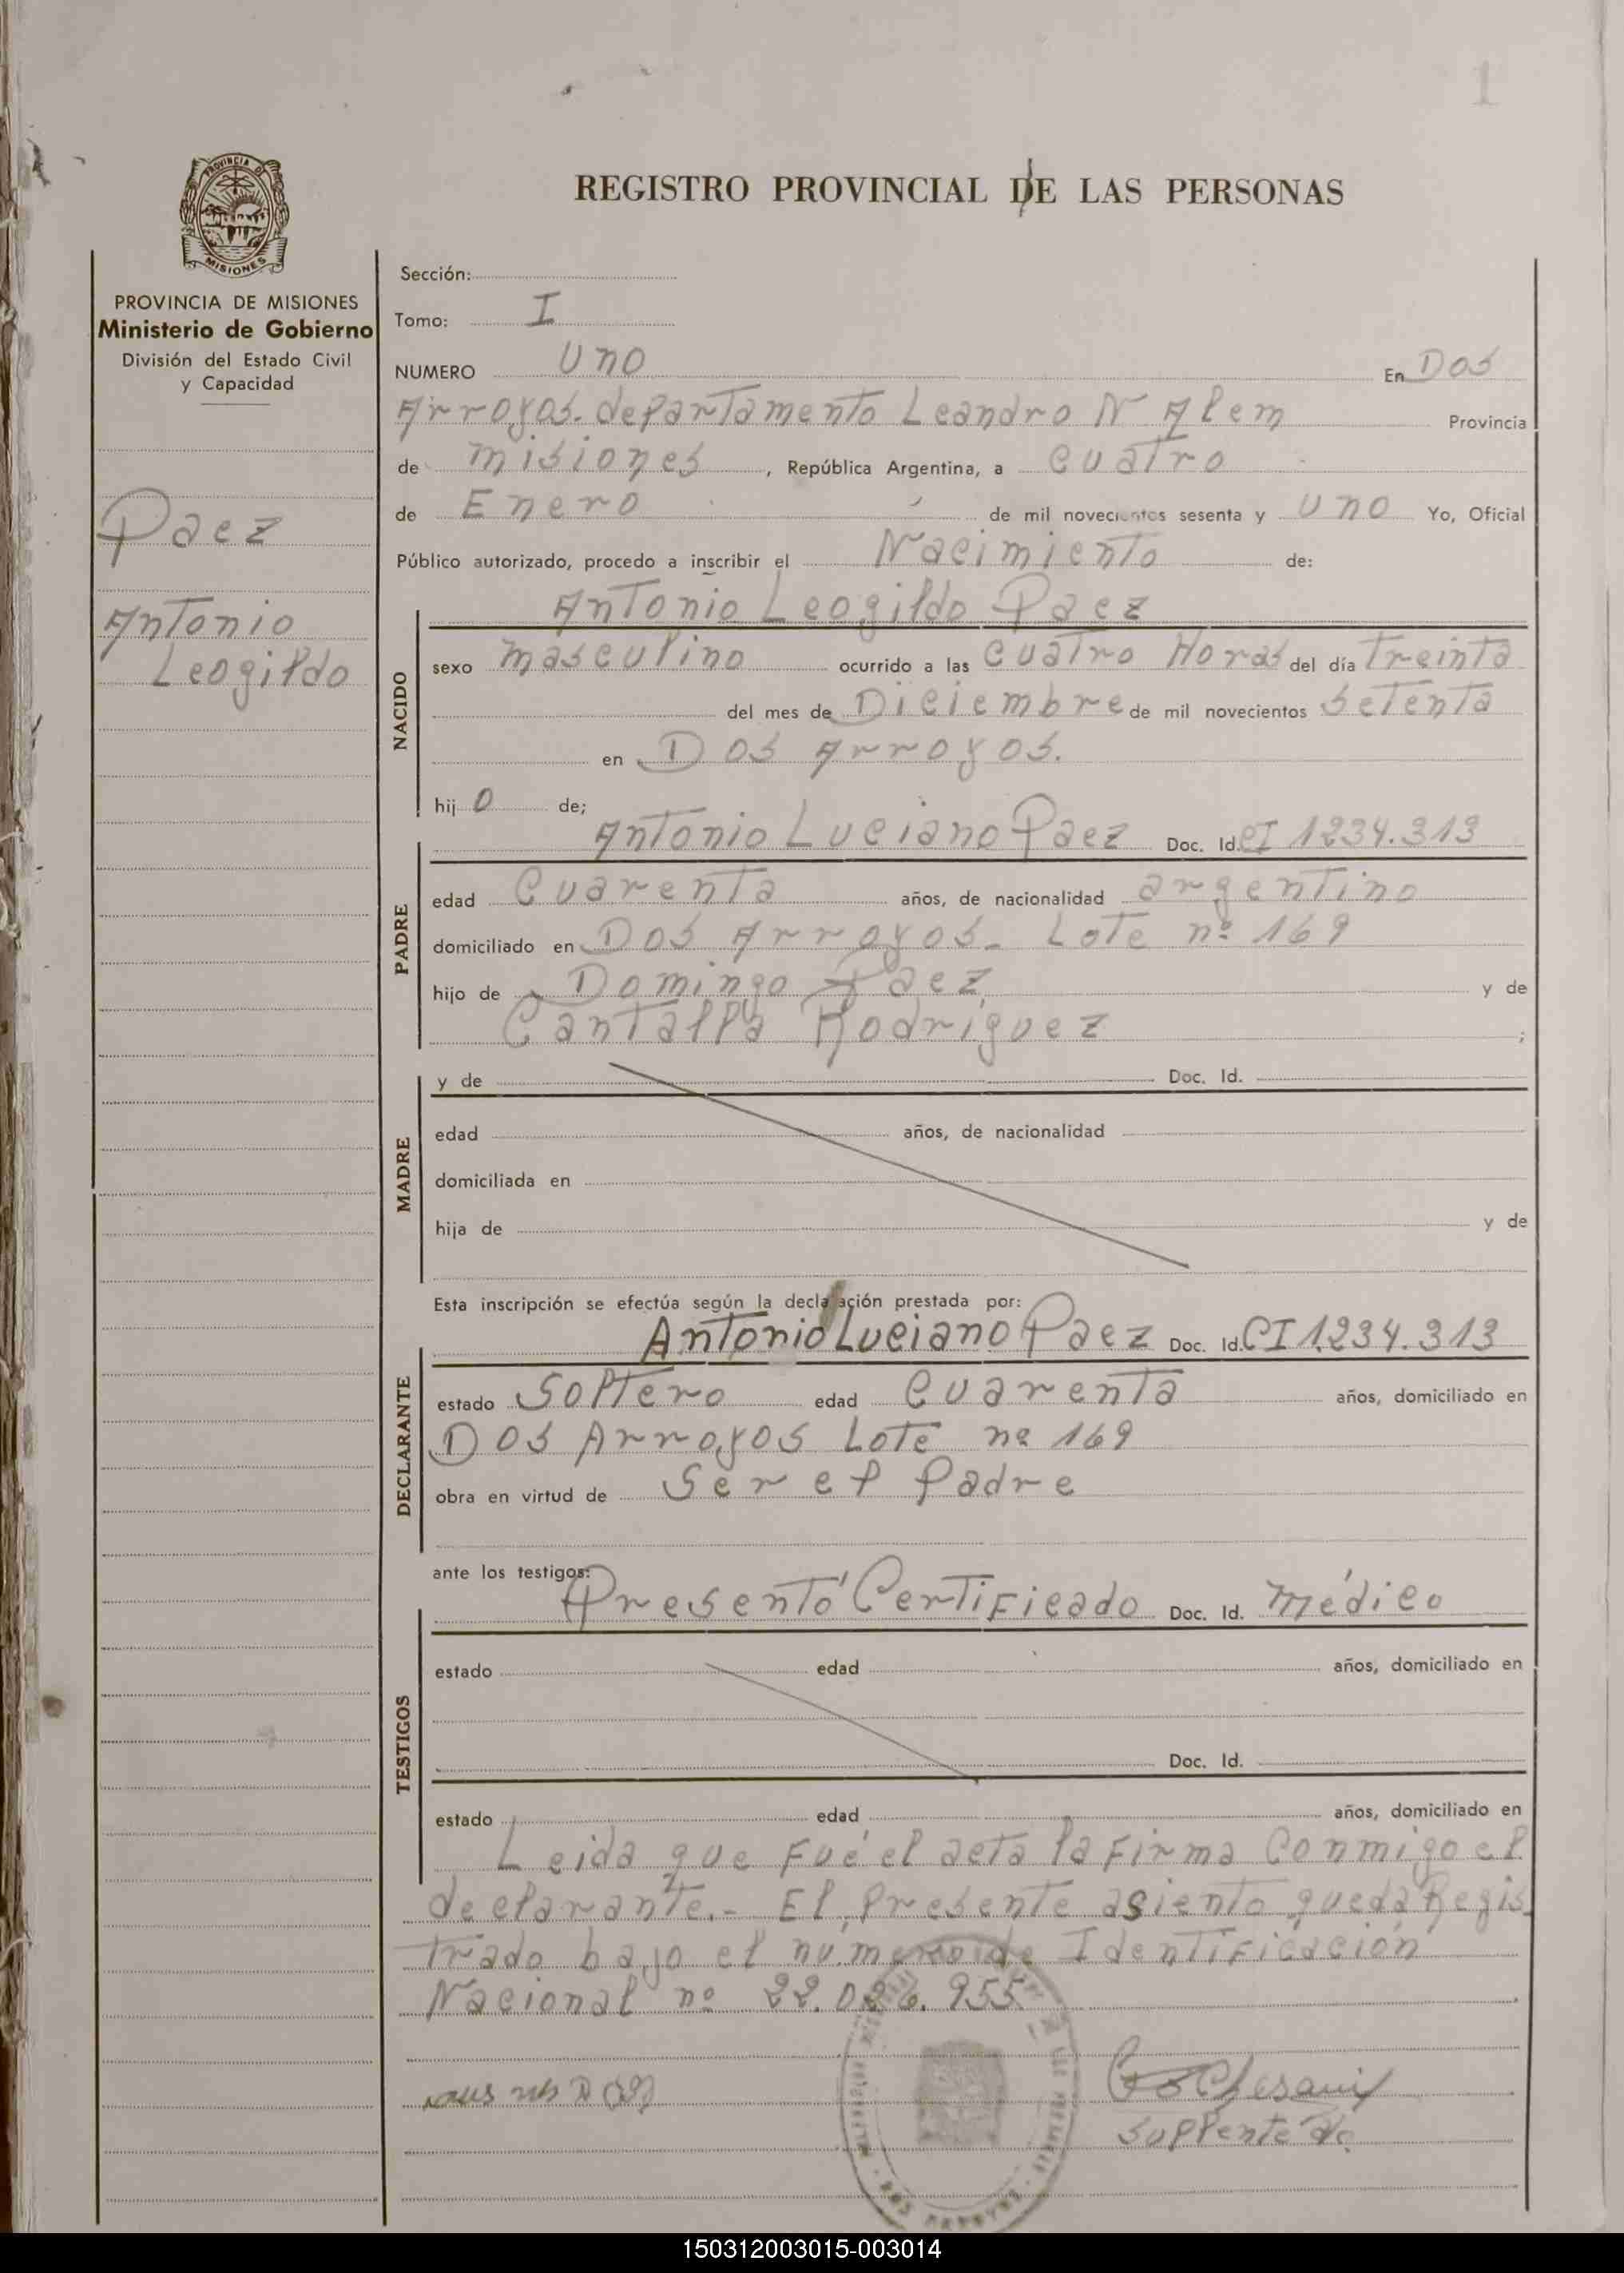 1
REGISTRO PROVINCIAL DE LAS PERSONAS
PROVINCIA DE
MISIONES
PROVINCIA DE MISIONES
Ministerio de Gobierno
División del Estado Civil
y Capacidad
Paez
Antonio
Leogildo
Sección:
Tomo: I
NUMERO Uno En Dos
Arroyos. departamento Leandro N Alem Provincia
de misiones, República Argentina, a cuatro
de Enero de mil novecientos sesenta y uno Yo, Oficial
Público autorizado, procedo a inscribir el Nacimiento de:
Antonio Leogildo Paez
NACIDO
sexo masculino ocurrido a las cuatro Horas del día Treinta
del mes de Diciembre de mil novecientos setenta
en Dos Arroyos.
hij o de;
Antonio Luciano Paez Doc. Id. CI 1234.313
PADRE
edad Cuarenta años, de nacionalidad argentino
domiciliado en Dos Arroyos. Lote nº 169
hijo de Domingo Paez y de
Cantalla Rodriguez ;
MADRE
y de Doc. Id.
edad años, de nacionalidad
domiciliada en
hija de y de
Esta inscripción se efectúa según la declaración prestada por:
Antonio Luciano Paez Doc. Id. CI 1.234.313
DECLARANTE
estado Soltero edad Cuarenta años, domiciliado en
Dos Arroyos Lote nº 169
obra en virtud de Ser el Padre
ante los testigos:
Presentó Certificado Doc. Id. médico
TESTIGOS
estado edad años, domiciliado en
Doc. Id.
estado edad años, domiciliado en
Leida que Fué el acta la Firma Conmigo el
declarante.- El presente asiento queda Regis
trado bajo el número de Identificación
Nacional nº 22.026.955
suplente
150312003015-003014